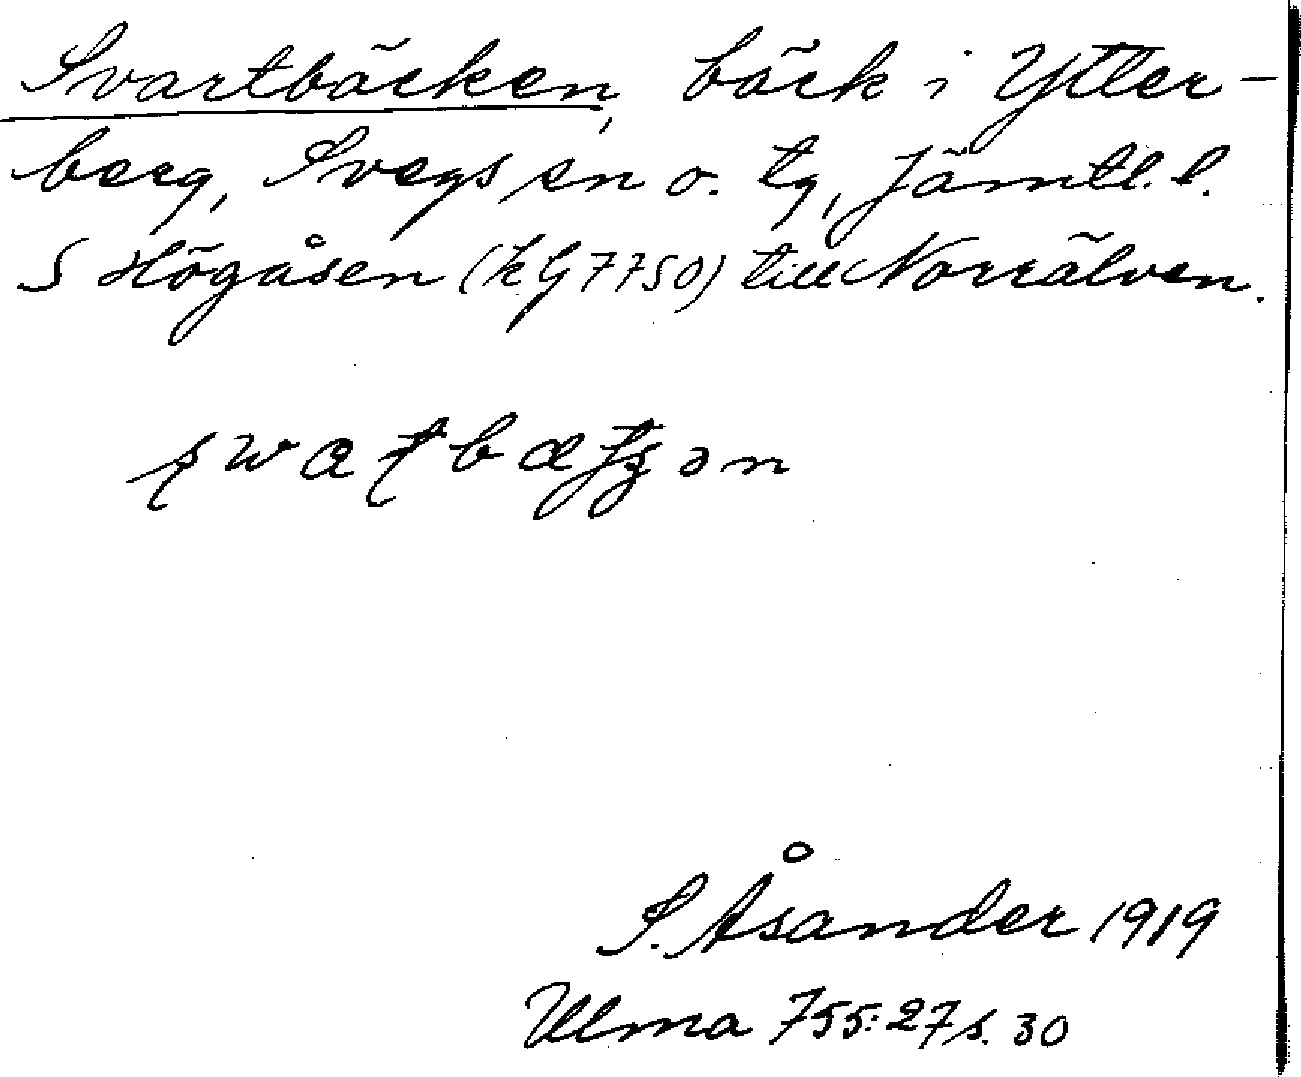 Svartbäcken, bäck i Ytter-
berg, Svegs sn o. tg, Jämtl. l.
S Högåsen (kG7750) till Norrälven.
S. Åsander 1919
Ulma 755:27 s. 30